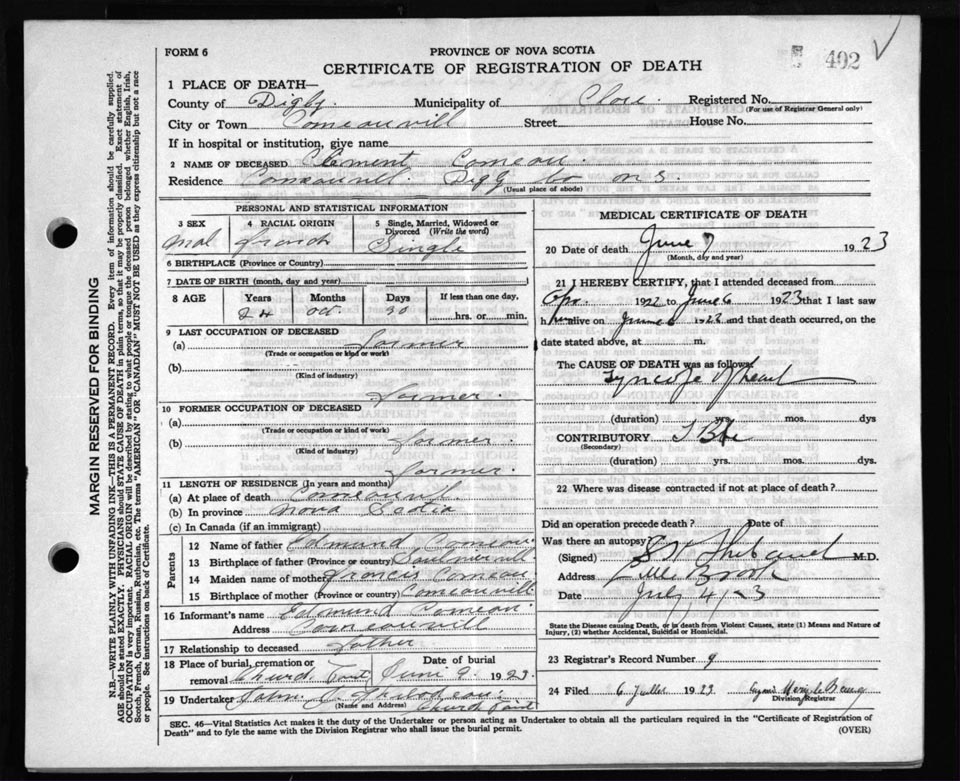 FORM 6
PROVINCE OF NOVA SCOTIA
402
CERTIFICATE OF REGISTRATION OF DEATH
1 PLACE OF DEATH—
County of Digby. Municipality of Clare. Registered No.
(For use of Registrar General only)
City or Town Comeauvill Street House No.
If in hospital or institution, give name
2 NAME OF DECEASED Clement Comeau.
Residence Comeauvill. Digby Co N.S.
(Usual place of abode)
PERSONAL AND STATISTICAL INFORMATION
3 SEX 4 RACIAL ORIGIN 5 Single, Married, Widowed or Divorced (Write the word)
Mal french Single
6 BIRTHPLACE (Province or Country)
7 DATE OF BIRTH (month, day and year)
8 AGE Years Months Days If less than one day.
24 Oct. 30 hrs. or min.
9 LAST OCCUPATION OF DECEASED
(a) farmer
(Trade or occupation or kind or work)
(b)
(Kind of industry)
farmer.
10 FORMER OCCUPATION OF DECEASED
(a)
(Trade or occupation or kind or work)
(b) farmer.
(Kind of industry)
farmer.
11 LENGTH OF RESIDENCE (In years and months)
(a) At place of death Comeauvill.
(b) In province Nova Scotia
(c) In Canada (if an immigrant)
Parents
12 Name of father Edmund Comeau.
13 Birthplace of father (Province or country) Saulnervill
14 Maiden name of mother Frances Comeau
15 Birthplace of mother (Province or country) Comeauvill
16 Informant's name Edmund Comeau.
Address Comeauvill
17 Relationship to deceased father
18 Place of burial, cremation or removal Church Point Date of burial Juni 9. 1923.
19 Undertaker John
(Name and Address) Church Point
MEDICAL CERTIFICATE OF DEATH
20 Date of death June 7 1923
(Month, day and year)
21 I HEREBY CERTIFY, that I attended deceased from
Apr. 1922 to June 6 1923 that I last saw
h im alive on June 6 1923 and that death occurred, on the
date stated above, at m.
The CAUSE OF DEATH was as follows:
Syncope of heart
(duration) yrs. mos. dys
CONTRIBUTORY T B
(Secondary)
(duration) yrs. mos. dys
22 Where was disease contracted if not at place of death?
Did an operation precede death? Date of
Was there an autopsy
(Signed) Thibault M.D.
Address Little Brook
Date July 4/23
State the Disease causing Death, or in death from Violent Causes, state (1) Means and Nature of Injury, (2) whether Accidental, Suicidal or Homicidal.
23 Registrar's Record Number 9
24 Filed 6 Juillet 1923
Division Registrar
SEC. 46—Vital Statistics Act makes it the duty of the Undertaker or person acting as Undertaker to obtain all the particulars required in the "Certificate of Registration of
Death" and to fyle the same with the Division Registrar who shall issue the burial permit. (OVER)
MARGIN RESERVED FOR BINDING
N.B.—WRITE PLAINLY WITH UNFADING INK—THIS IS A PERMANENT RECORD. Every item of information should be carefully supplied.
AGE should be stated EXACTLY. PHYSICIANS should STATE CAUSE OF DEATH in plain terms, so that it may be properly classified. Exact statement of
OCCUPATION is very important. RACIAL ORIGIN will be described by stating to what people or tongue the deceased person belonged whether English, Irish,
Scotch, French, German, Russian, Ruthenian, etc. The terms "AMERICAN" OR "CANADIAN" MUST NOT BE USED as they express citizenship but not a race
or people. See instructions on back of Certificate.